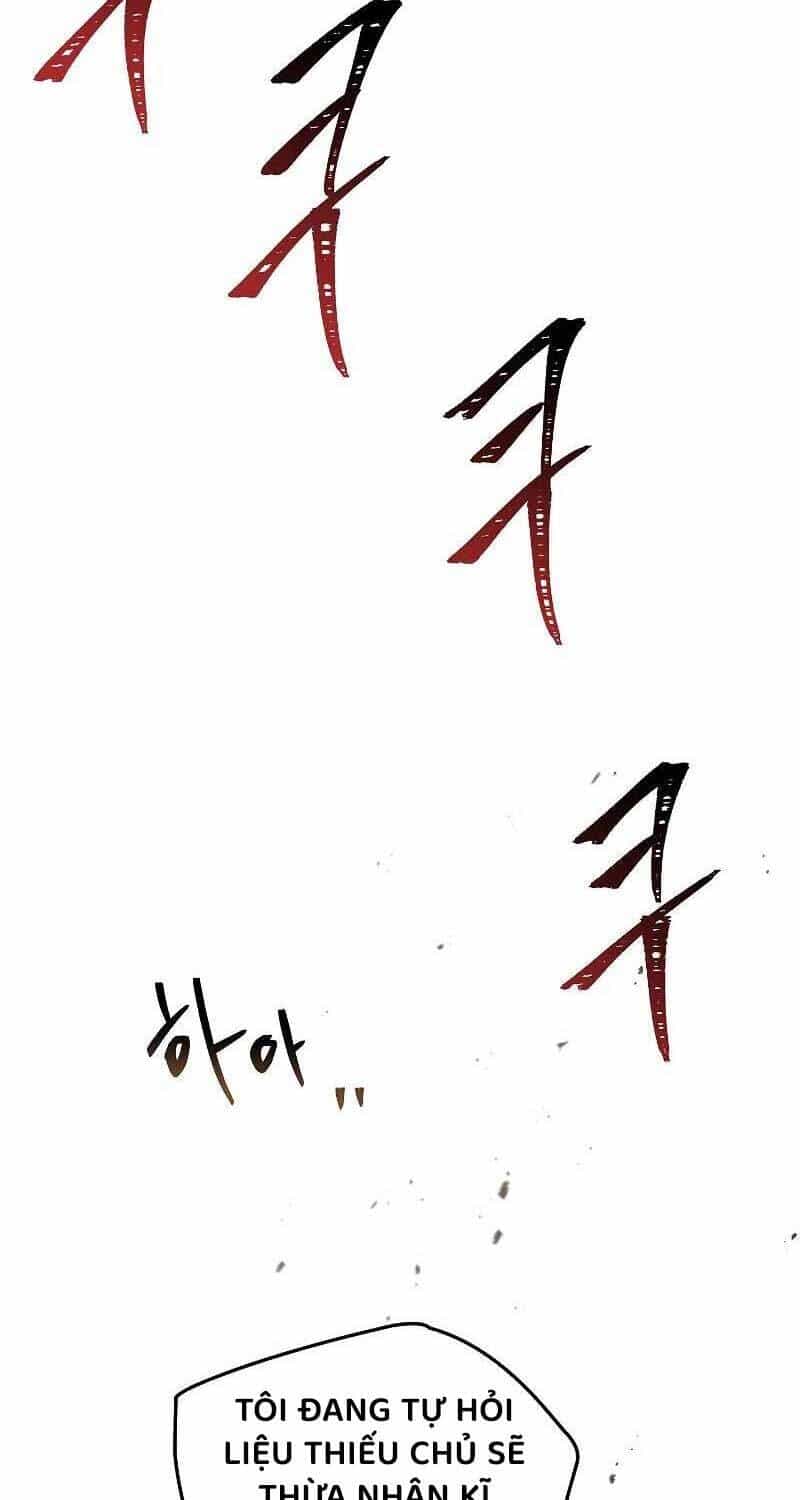 크
크
크
크
하아
TÔI ĐANG TỰ HỎI
LIỆU THIẾU CHỦ SẼ
THỪA NHẬN KĨ